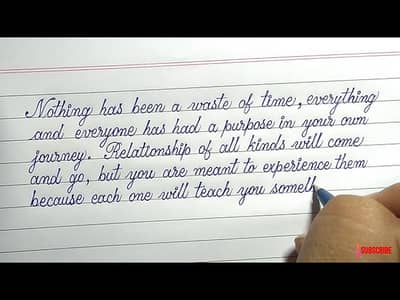 Nothing has been a waste of time, everything
and everyone has had a purpose in your own
journey. Relationship of all kinds will come
and go, but you are meant to experience them
because each one will teach you
SUBSCRIBE